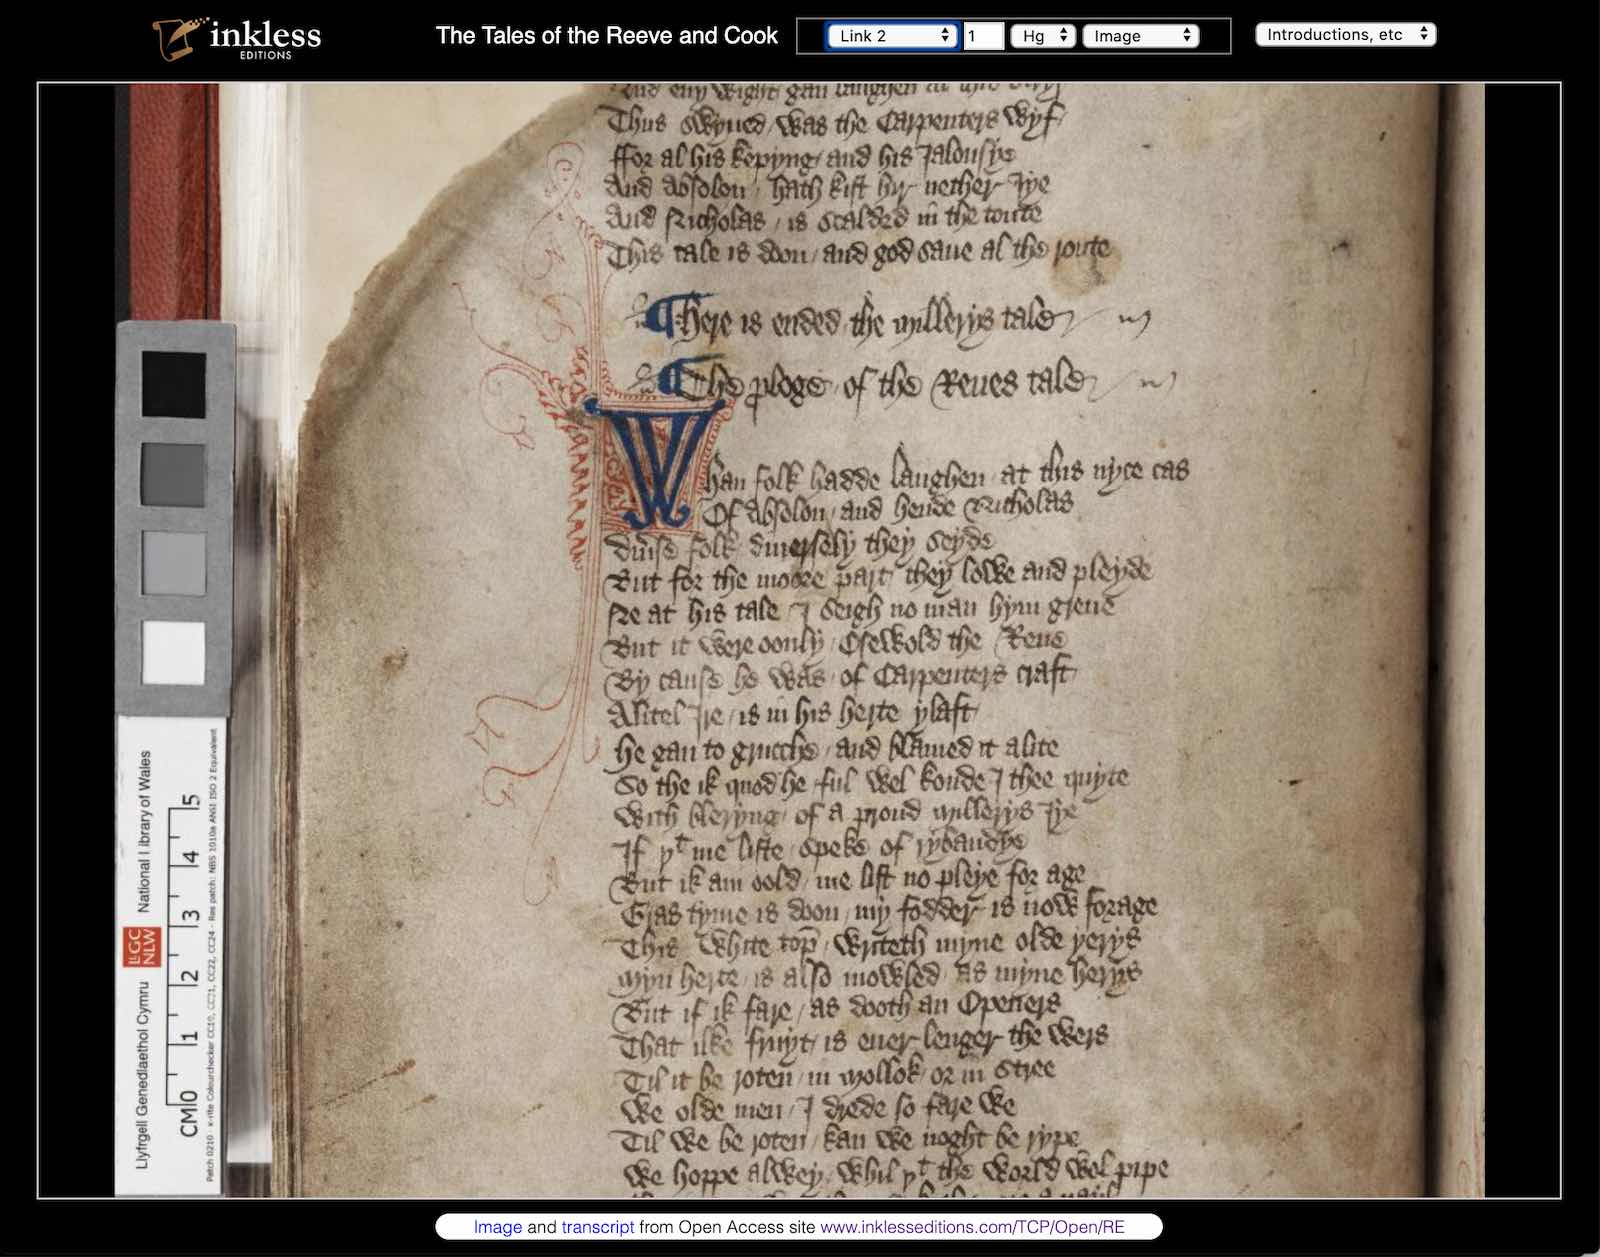 inkless
EDITIONS
The Tales of the Reeve and Cook
Link 2
1
Hg
Image
Introductions, etc
Thus swyued / was the Carpenters wyf /
ffor al his kepyng / and his Ialousye
And Absolon / hath kist hir nether Iye
And Nicholas / is scalded in the toute
This tale is doon / and god saue al the route
¶ Here is ended / the Millerys tale
¶ The ꝓloge / of the Reues tale
Whan folk hadde laughen / at this nyce cas
Of Absolon / and hende Nicholas
diuse folk / diuersely they seyde
But for the moore part / they lowe and pleyde
Ne at his tale / I seigh no man hym greue
But it were oonly / Osewold the Reue
By cause he was / of Carpenters craft
A litel Ire / is in his herte ylaft
He gan to grucche / and blamed it a lite
So the ik quod he / ful wel koude I thee quyte
With bleryng / of a proud Millerys Iye
If yͭ me liste / speke of rybaudye
But ik am oold / me list no pleye for age
Gras tyme is doon / my fodder is now forage
This white top̄ / writeth myne olde yerys
Myn herte / is also mowled / as myne herys
But if ik fare / as dooth an Openers
That ilke fruyt / is euer lenger the wers
Til it be roten / in Mollok / or in stree
We olde men / I drede so fare we
Til we be roten / kan we noght be rype
We hoppe alwey / whil yͭ the world wol pipe
Llyfrgell Genedlaethol Cymru
National Library of Wales
LlGC
NLW
CM 0 1 2 3 4 5
Image and transcript from Open Access site www.inklesseditions.com/TCP/Open/RE